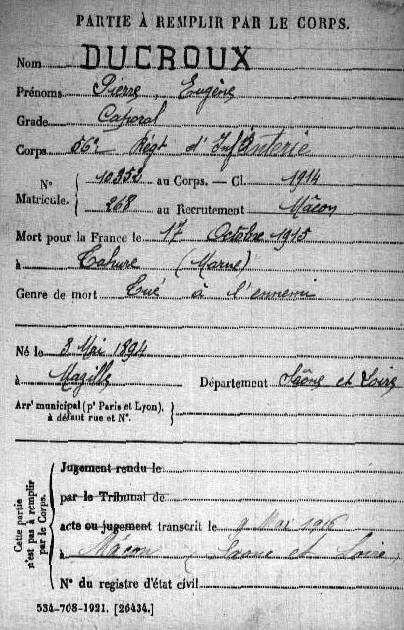 PARTIE À REMPLIR PAR LE CORPS.
Nom DUCROUX
Prénoms Pierre Eugène
Grade Caporal
Corps 56e Régt d'Infanterie
N° Matricule. 10353 au Corps. — Cl. 1914
268 au Recrutement Mâcon
Mort pour la France le 17 Octobre 1915
à Tahure (Marne)
Genre de mort Tué à l'ennemi
Né le 3 Mai 1894
à Mazille Département Saône et Loire
Arrt municipal (pr Paris et Lyon),
à défaut rue et N°.
Cette partie n'est pas à remplir par le Corps.
Jugement rendu le
par le Tribunal de
acte ou jugement transcrit le 9 Mai 1916
à Mâcon (Saone et Loire)
N° du registre d'état civil
534-708-1921. [26434.]